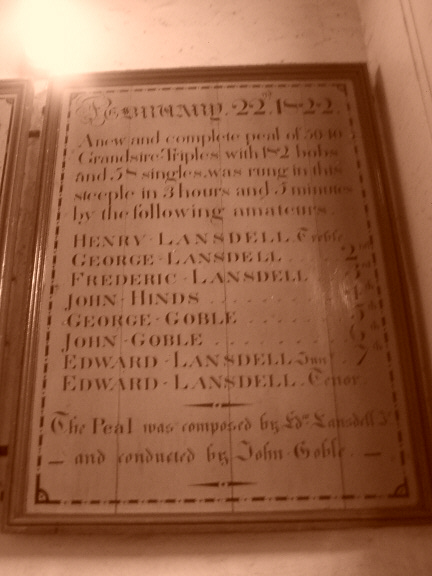 February. 22nd. 1822.
A new and complete peal of 5040
Grandsire Triples with 182 bobs
and 58 singles, was rung in this
steeple in 3 hours and 5 minutes
by the following amateurs.
HENRY · LANSDELL. Treble
GEORGE · LANSDELL . . . . 2nd
FREDERIC · LANSDELL
JOHN · HINDS . . . . . .
GEORGE · GOBLE . . . . .
JOHN · GOBLE . . . . . .
EDWARD · LANSDELL Junr . . 7
EDWARD · LANSDELL. Tenor.
The Peal was composed by Ed. Lansdell Jr
— and conducted by John · Goble. —